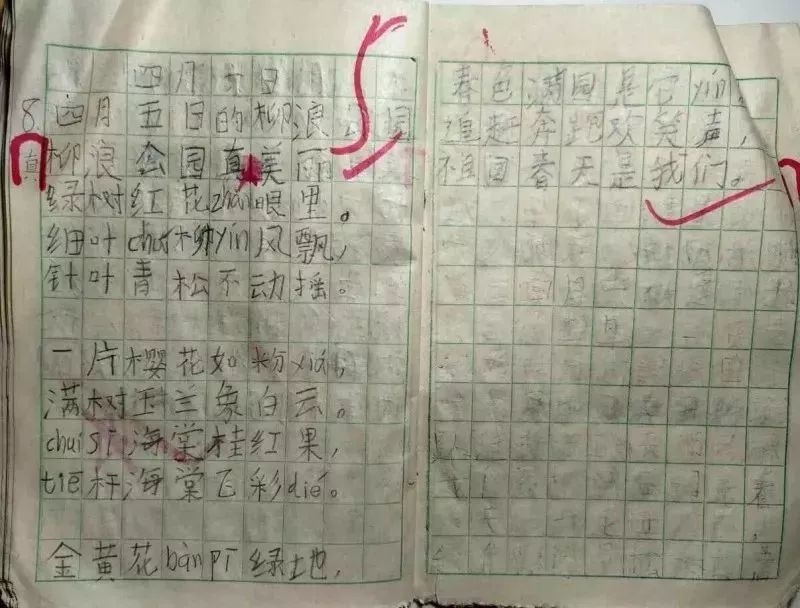 四月六日
8 四月五日的柳浪公园
真
柳浪公园真美丽
绿树红花zhān眼里。
细叶chuí柳yín风飘,
针叶青松不动摇。
一片樱花如粉xiá,
满树玉兰象白云。
chuí sī海棠桂红果,
tiē杆海棠飞彩dié。
金黄花bàn pī绿地,
春色满园是它yìn,
追赶奔跑欢笑声,
春天是我们。